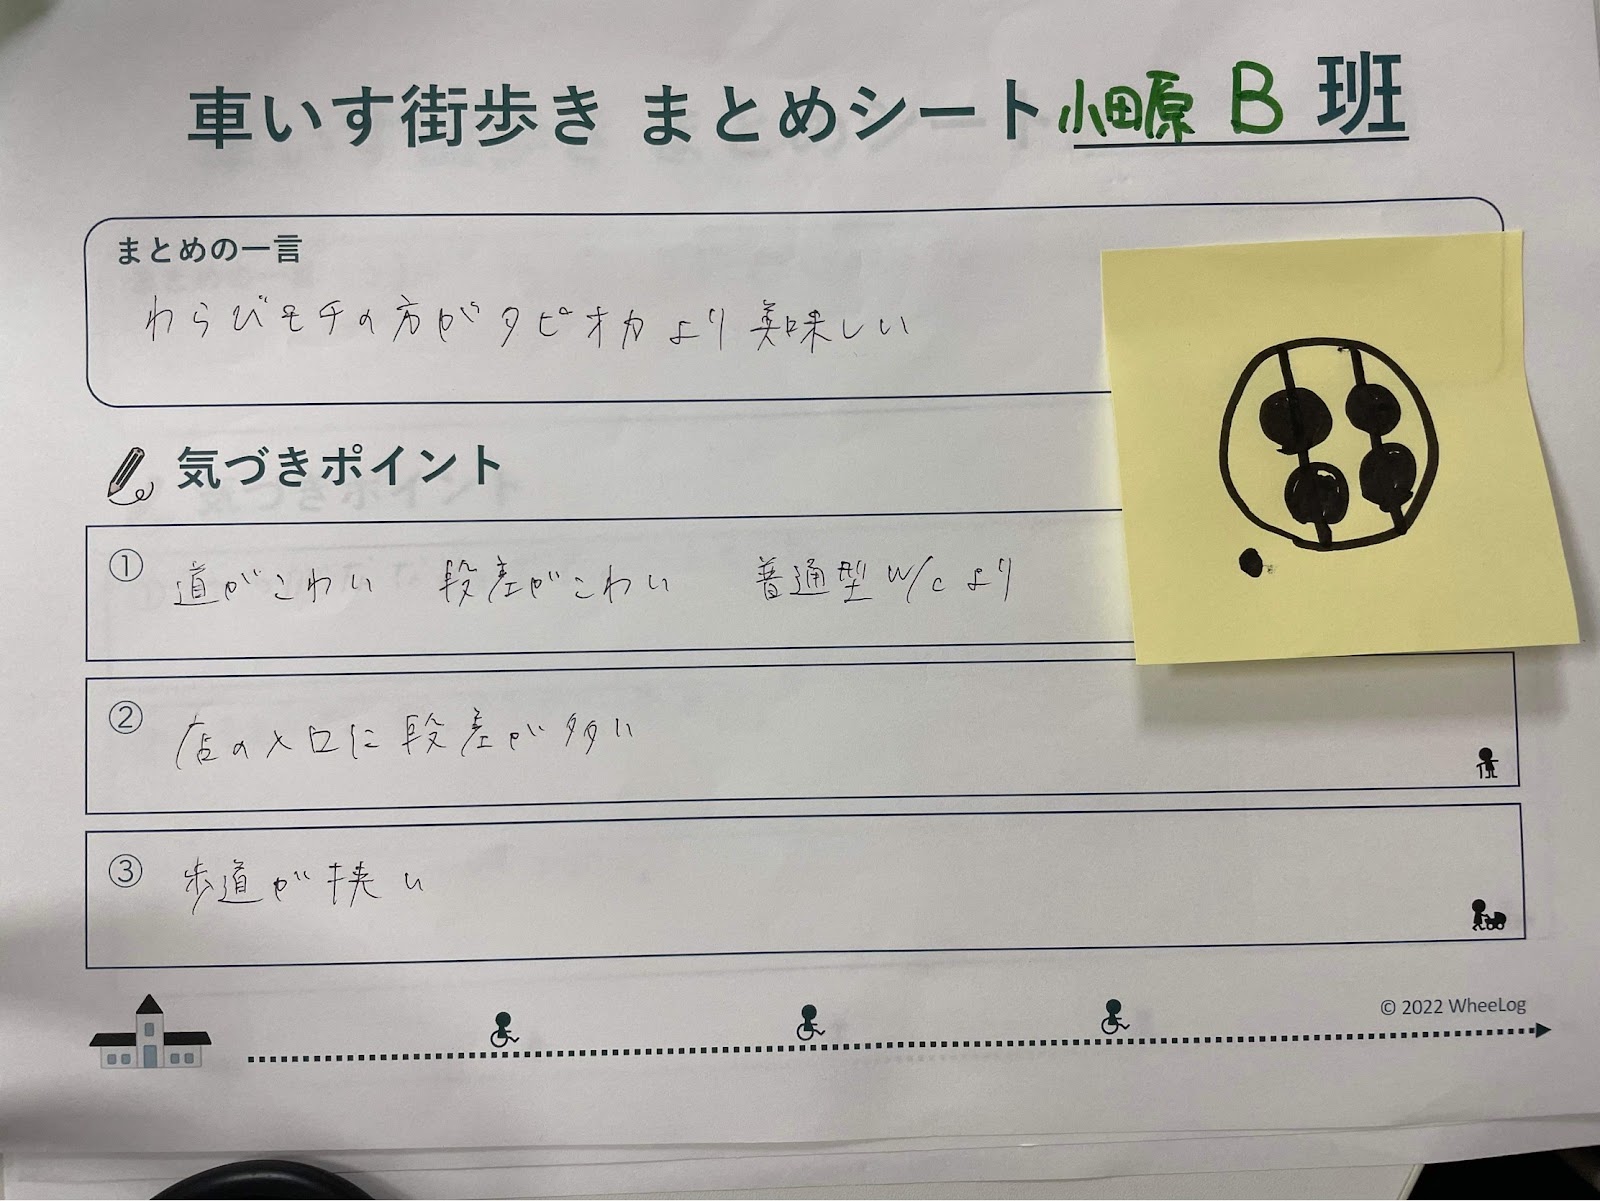 車いす街歩き まとめシート小田原 B 班
まとめの一言
わらびモチの方がタピオカより美味しい
気づきポイント
① 道がこわい 段差がこわい 普通型W/Cより
② 店の入口に段差が多い
③ 歩道が狭い
© 2022 WheeLog